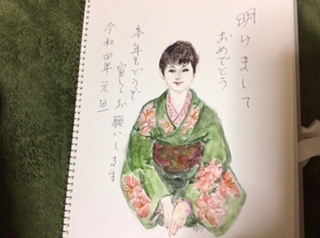 明けまして
おめでとう
本年もどうぞ
宜しくお願いします
令和四年 元旦